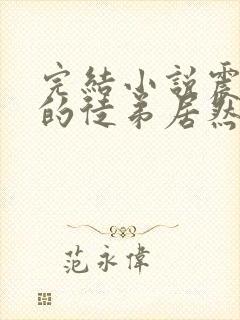 完結小說震
的徒弟居然
范永偉